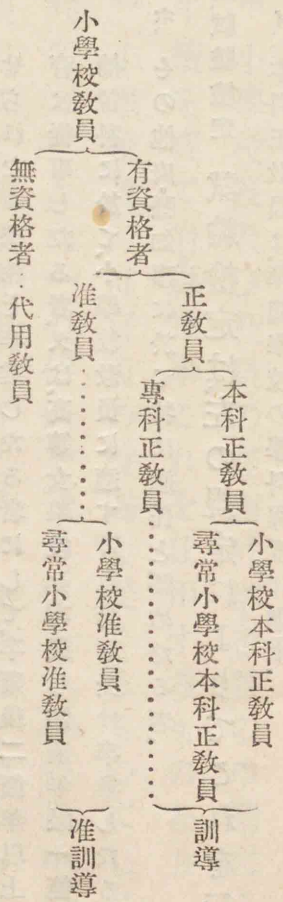 小學校敎員
有資格者
正敎員
本科正敎員
小學校本科正敎員
尋常小學校本科正敎員
專科正敎員
訓導
准敎員
小學校准敎員
尋常小學校准敎員
准訓導
無資格者‥代用敎員